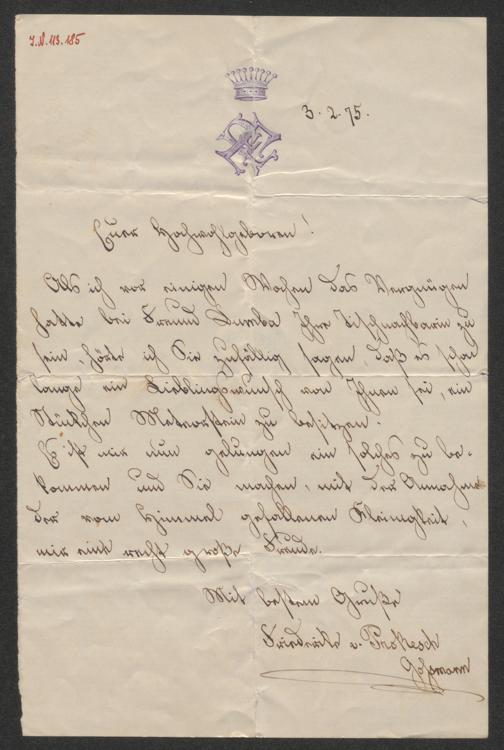 I.N. 113.185
3. 2. 75.
Euer Hochwohlgeboren!
Als ich vor einigen Wochen das Vergnügen
hatte bei Freund Dumba Ihre Tischnachbarin zu
sein, hörte ich Sie zufällig sagen, daß es schon
lange ein Lieblingswunsch von Ihnen sei, ein
Stückchen Meteorstein zu besitzen.
Es ist mir nun gelungen ein solches zu be-
kommen und Sie machen, mit der Annahme
der vom Himmel gefallenen Kleinigkeit,
mir eine recht große Freude.
Mit bestem Gruße
Friederike v. Prokesch
Goßmann